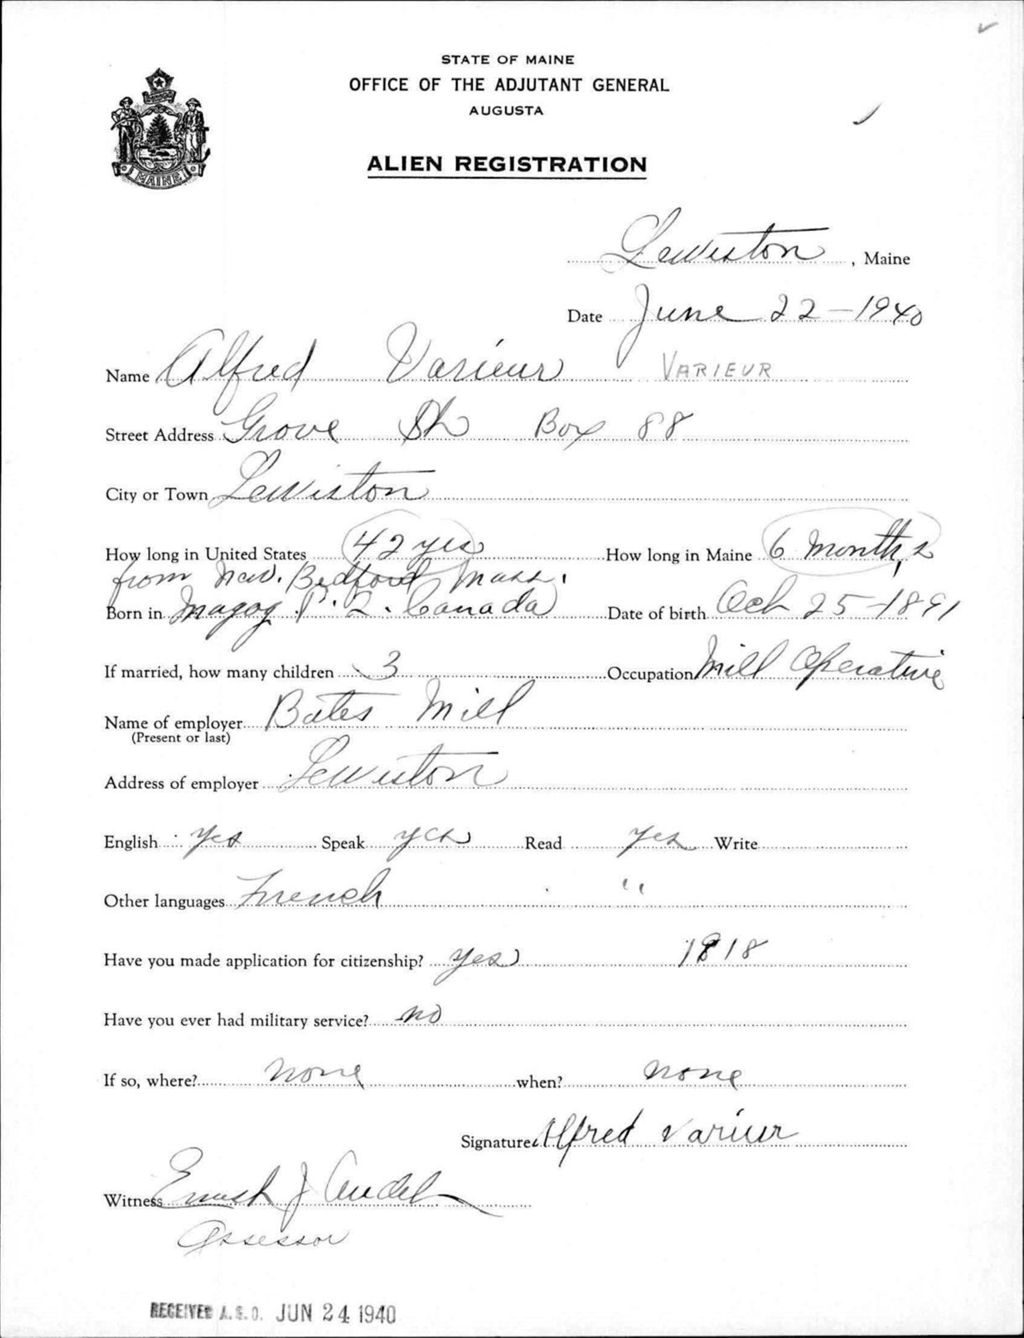 STATE OF MAINE
OFFICE OF THE ADJUTANT GENERAL
AUGUSTA
ALIEN REGISTRATION
MAINE
Lewiston, Maine
Date June 22-1940
Name Alfred Varieur VARIEUR
Street Address Grove St Box 88
City or Town Lewiston
How long in United States 42 yrs How long in Maine 6 months
from New. Bedford Mass.
Born in Magog P. Q. Canada Date of birth Oct 25-1891
If married, how many children 3 Occupation Mill Operative
Name of employer Bates Mill
(Present or last)
Address of employer Lewiston
English yes Speak yes Read yes Write
Other languages French "
Have you made application for citizenship? yes 1918
Have you ever had military service? no
If so, where? none when? none
Signature Alfred Varieur
Witness J
Assessor
RECEIVED A.G.O. JUN 24 1940